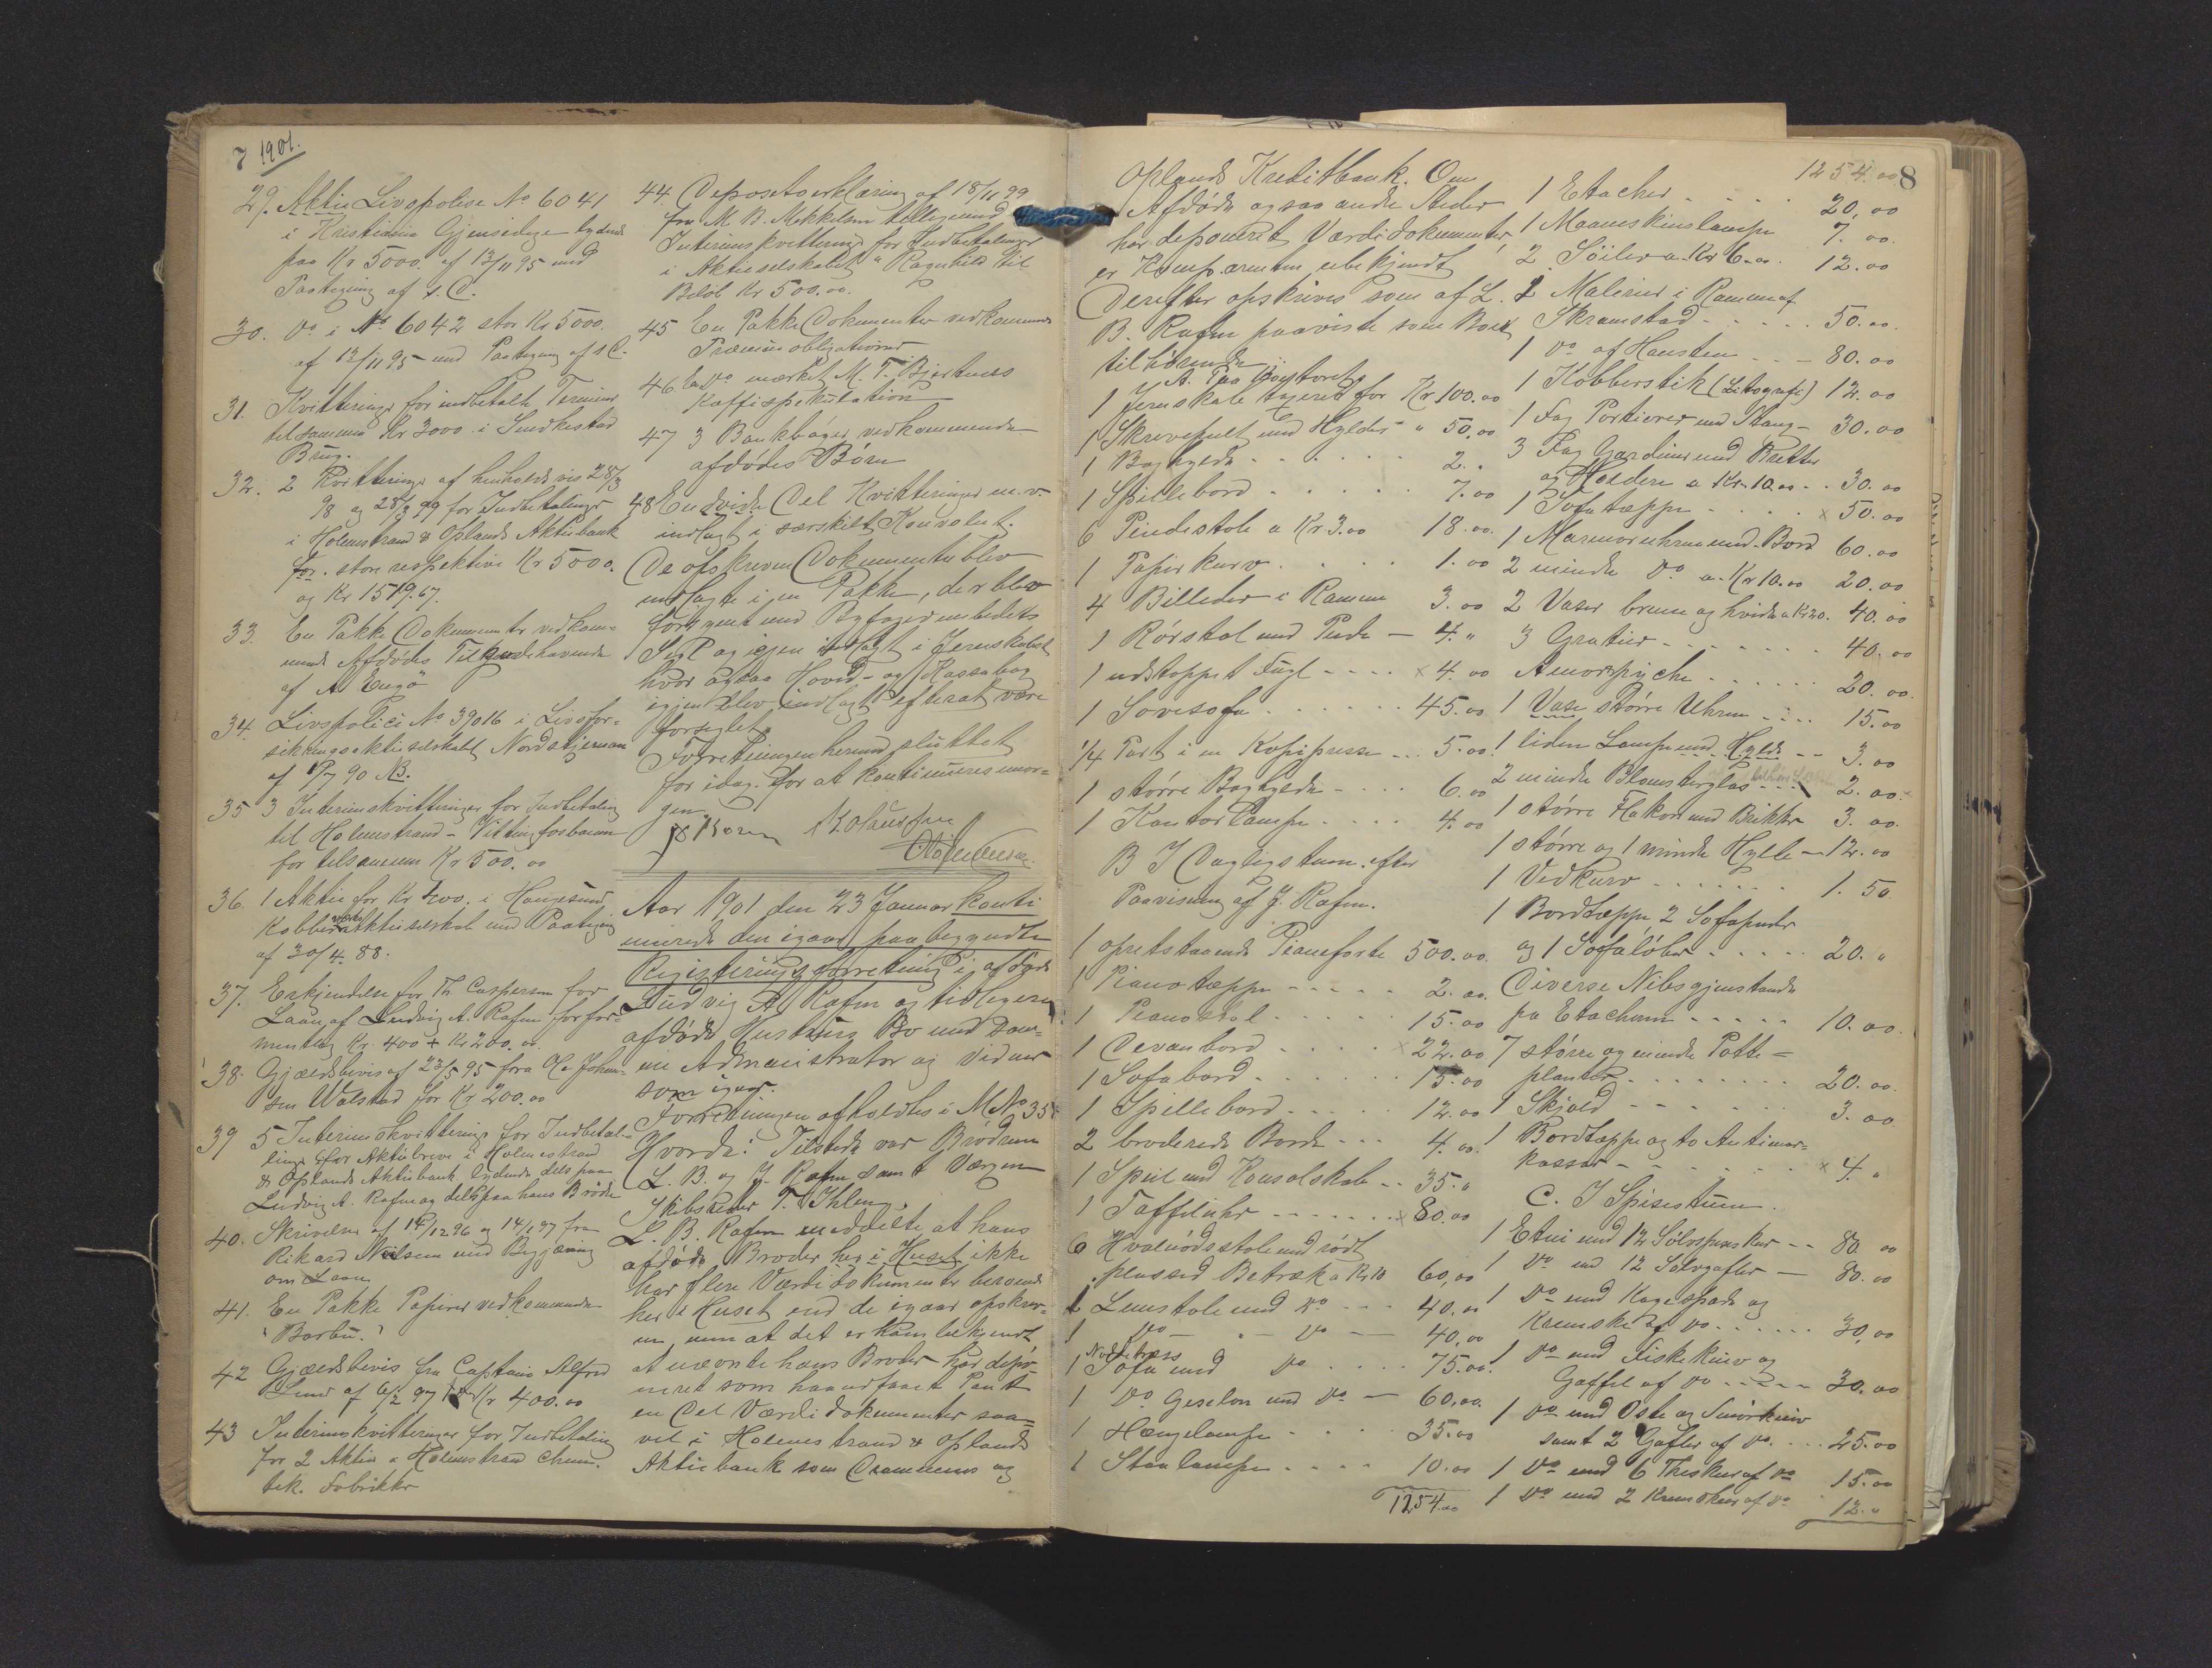 7 1901.
29. Aktie Livspolise No 6041
i Kristiania Gjensidige lydende
paa Kr 5000. af 13/11 95 med
Paategning af s. C.
30. Do i No 6042 stor Kr 5000.
af 13/11 95 med Paategning af s C.
31. Kvitteringer for indbetalte Terminer
tilsammen Kr 3000 i Sundkestad
Brug.
32. 2 Kvitteringer af henholdsvis 28/3
98 og 28/3 99 for Indbetalinger
i Holmestrand & Oplands Aktiebank
for. store respektive Kr 5000.
og Kr 1519.67.
33. En Pakke Dokumenter vedkom-
mende Afdødes Tilgodehavende
af A. Engö
34. Livspolici No 39016 i Livsfor-
sikringsaktieselskabet Nordstjernen
af 90 NB.
35 3 Interimskvitteringer for Indbetaling
til Holmestrand-Vittingfosbanen
for tilsammen Kr 500.00
36. 1 Aktie for Kr 400. i Haugesund
Kobberværks Aktieselskab med Paategning
af 30/4. 88.
37. Erkjendelse for Th Caspersen for
Laan af Ludvig A. Rafen for for-
mentlig Kr. 400 + Kr 200.00.
38. Gjældsbevis af 23/5 95 fra H. Johan-
sen Walstad for Kr 200.00
39 5 Interimskvitteringer for Indbetal-
linger for Aktiebreve i Holmestrand
& Oplands Aktiebank lydende dels paa
Ludvig A. Rafen og dels paa hans Brødre
40. Skrivelser af 14/12 96 og 14/1 97 fra
Rikard Nilsen med Begjæring
om Laan
41. En Pakke Papirer vedkommende
"Barbu."
42 Gjældsbevis fra Captain Alfred
Lund af 6/2 97 Kr 400.00
43 Interimskvitteringer for Indbetaling
for 2 Aktier i Holmestrand chem.
tek. Fabrikker
44. Deposetoerklæring af 18/11 99
fra M. B. Mikkelsen tilligemed
Interimskvitteringer for Indbetalinger
i Aktieselskabet "Ragnhild" til
Beløb Kr 500.00.
45 En Pakke Dokumenter vedkommende
Præmieobligationer
46 En Do mærket M. T. Bjertnæs
Kaffispekulation
47 3 Bankbøger vedkommende
afdødes Børn
48 Endvidere Del Kvitteringer m. v.
indlagt i særskilt Konvolut.
De opskrevne Dokumenter blev
indlagte i en Pakke, der blev
forsynet med Byfogedembedets
Segl og igjen indlagt i Jernskabet
hvor ogsaa Hoved- og Kassabog
igjen blev indlagt efterat være
forseglet.
Forretningen hermed sluttet
for idag. for at kontinueres imor-
gen.
Aar 1901 den 23 Januar konti
nuerede den igaar paabegyndte
Registreringsforretning i afdøde
Ludvig A Rafen og tidligere
afdøde Hustrus Bo med Sam-
me Administrator og Vidner
som igaar.
Forretningen afholdtes i MNo 35
Hvorda: Tilstede var Brødrene
L. B. og J. Rafen samt Værgen
Skibsreder T. Ihlen
L. B. Rafen meddelte at hans
afdøde Broder her i Huset ikke
har flere Værdidokumenter beroende
her i Huset end de igaar opskrev-
ne, men at det er ham bekjendt
at nævnte hans Broder har depo-
neret som haandfaaet Pant
en Del Værdidokumenter saa-
vel i Holmestrand & Oplands
Aktiebank som Drammens og
8
Oplands Kreditbank. Om
Afdøde ogsaa andre Steder
har deponeret Værdidokumenter,
er Komparenten ubekjendt
Derefter opskrives som af L.
B. Rafen paaviste som Boet
tilhørende
A. Paa Kontoret
1 Jernskab taxeret for Kr 100.00
1 Skrivepult med Hylder " 50.00
1 Boghylde 2. "
1 Spillebord 7.00
6 Pindestole a Kr. 3.00 18.00.
1 Papirkurv 1.00
4 Billeder i Ramme 3.00
1 Rørstol med Pude — 4. "
1 udstoppet Fugl x 4.00
1 Sovesofa 45.00
1/4 Part i en Kopipresse 5.00
1 større Boghylde 6.00
1 Kontorlampe 4.00
B I Dagligstuen. efter
Paavisning af J. Rafen.
1 opretstaaende Pianoforte 500.00.
1 Pianotæppe 2.00.
1 Pianostol 15.00
1 Devanbord x 22.00
1 Sofabord 15.00
1 Spillebord 12.00
2 broderede Borde 4.00
1 Speil med Konsolskab 35. "
1 Taffeluhr x 80.00
6 Hvalnødsstole med rødt
plussed Betræk a Kr 10 60,00
2 Lenestole med Do 40.00
1 Do — Do 40,00
Nøddetræs
1 Sofa med Do 75.00.
1 Do Geselon med Do — 60,00.
1 Hængelampe 35.00
1 Staalampe 10.00
1254.00
1254.00
1 Etacher 20,00
1 Maaneskinslampe 7.00.
2 Söiler a Kr 6.00. 12.00
2 Malerier i Ramme af
Skramstad 50.00.
1 Do af Hansten — 80.00
1 Kobberstik (Litografi) 12.00
1 Fag Portierer med Stang — 30.00
3 Fag Gardiner med Bretter
og Holdere a Kr. 10.00 30.00
1 Sofatæppe x 50.00
1 Marmoruhrn med Bord 60.00
2 mindre Do a Kr 10.00 20.00
2 Vaser brune og hvide a Kr 20. 40.00
3 Gratier 40.00
Amorpsyche 20.00.
1 Vase større Uhrne 15.00
1 liden Lampe med Hylde 3.00
2 mindre Blomsterglas 2.00.
1 større Flakon med Brikke 3.00.
1 større og 1 mindre Hylle — 12.00
1 Vedkurv 1.50
1 Bordtæppe, 2 Sofapuder
og 1 Sofaløber 20. "
Diverse Nibsgjenstande
pa Etacheren 10.00.
7 større og mindre Potte-
planter 20.00.
1 Skjold 3.00
1 Bordtæppe og to Antimar-
kassar x 4. "
C. I Spisestuen.
1 Etui med 12 Sølvspiseskeer 80.00
1 Do med 12 Sølvgafler — 80.00
1 Do med Kagespade og
Kremske af Do 30,00
1 Do med Fiskekniv og
Gaffel af Do 30.00
1 Do med Oste og Smørkniv
samt 2 Gafler af Do. 25.00
1 Do med 6 Theskeer af Do 15.00
1 Do med 2 Kremskeer af Do 12. "